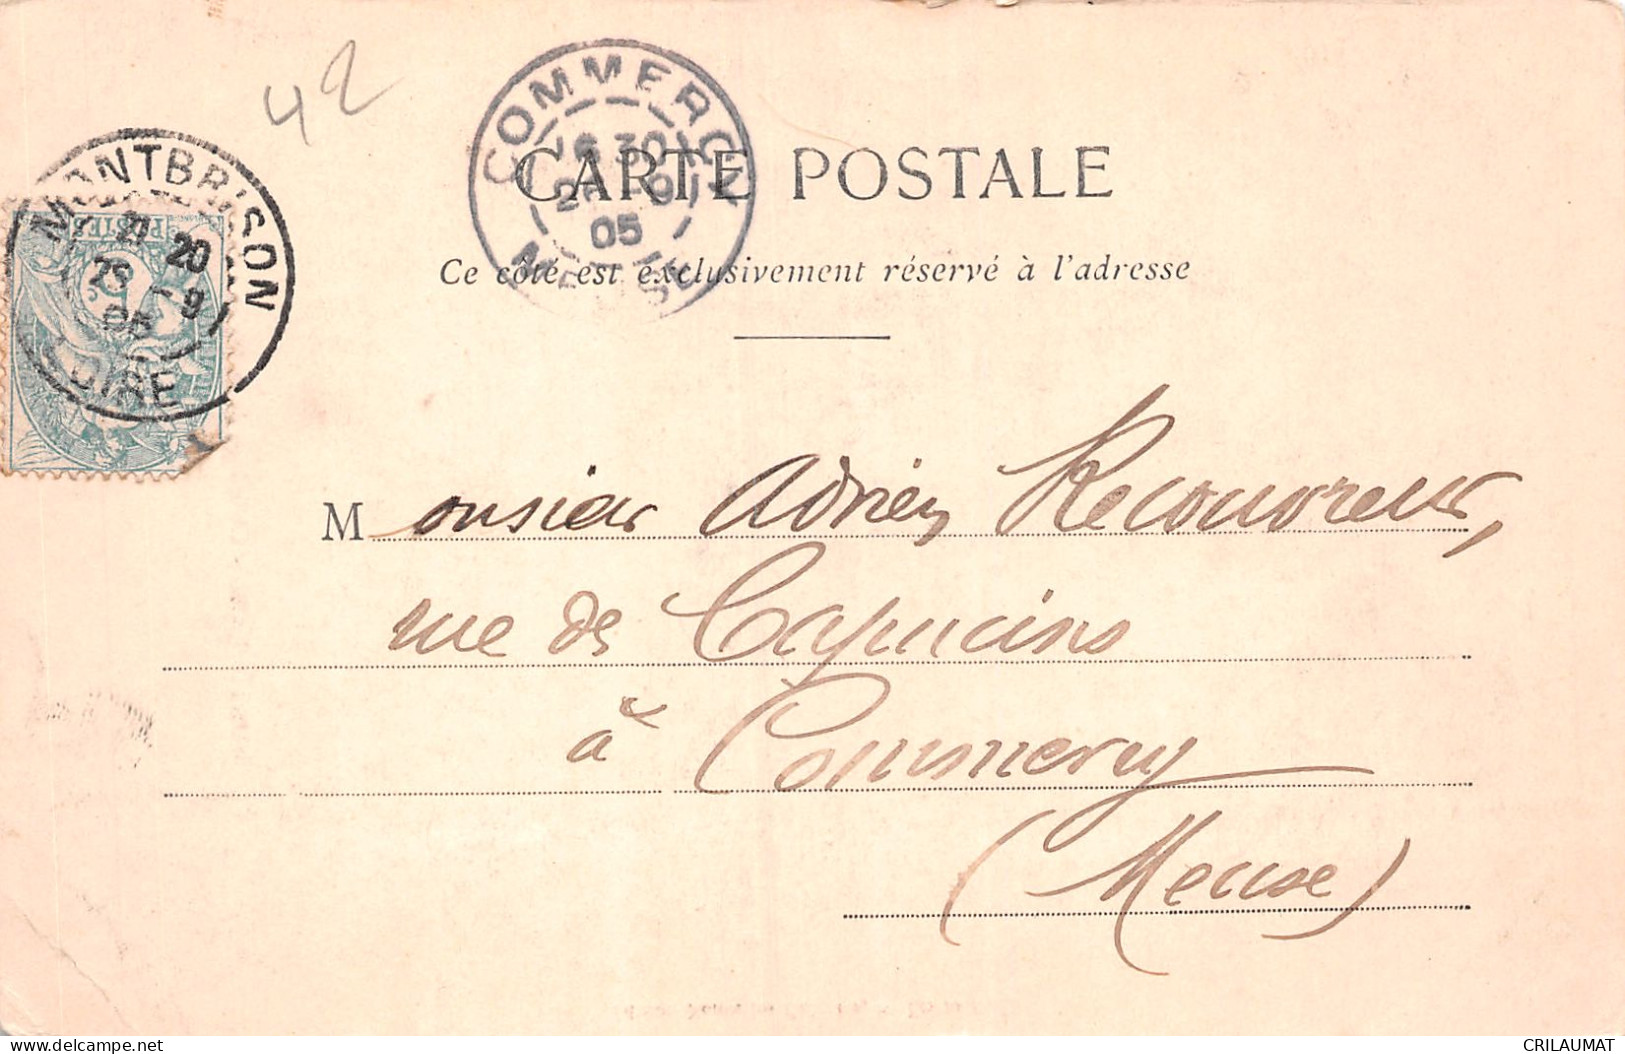 42
COMMERCY
16 30
9
05
MEUSE
MONTBRISON
20
25 -9
05
LOIRE
POSTES
CARTE POSTALE
Ce côté est exclusivement réservé à l'adresse
Monsieur Adrien Recouvreur,
rue des Capucins
à Commercy
(Meuse)
CRILAUMAT